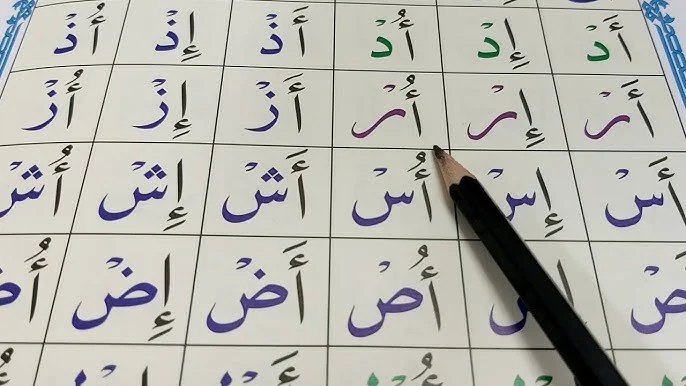 أَدْ إِدْ أُدْ أَذْ إِذْ أُذْ
أَرْ إِرْ أُرْ أَزْ إِزْ أُزْ
أَسْ إِسْ أُسْ أَشْ إِشْ أُشْ
أُصْ أَضْ إِضْ أُضْ